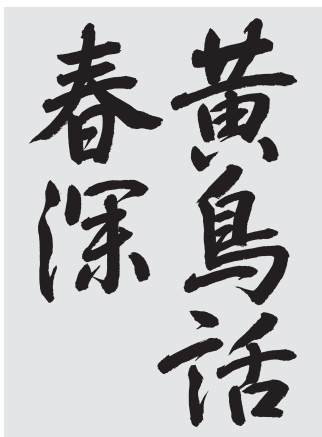 黄鳥話
春深